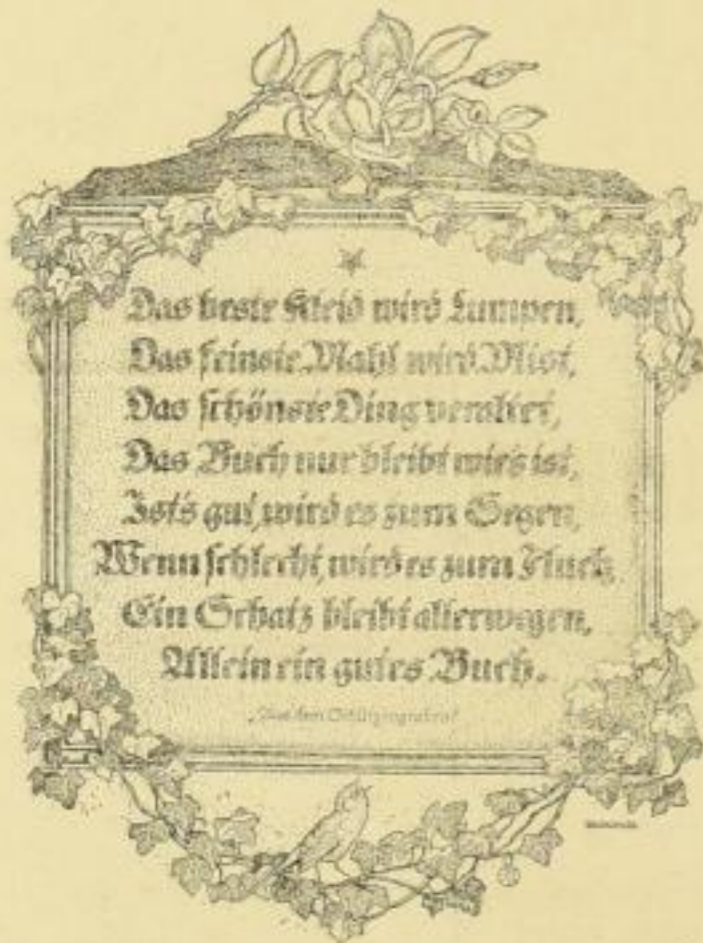 Das beste Kleid wird Lumpen,
Das feinste Mahl wird Mist,
Das schönste Ding veraltet,
Das Buch nur bleibt wie's ist,
Ist's gut, wird es zum Segen,
Wenn schlecht, wird es zum Fluch,
Ein Schatz bleibt allerwegen,
Allein ein gutes Buch.